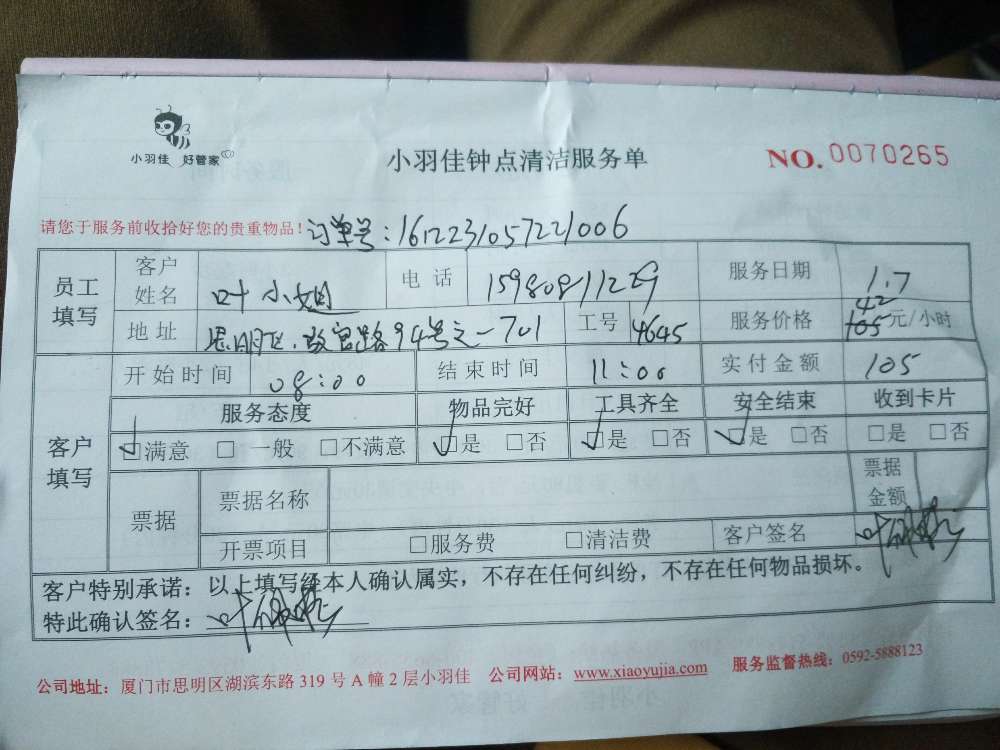 小羽佳 好管家
小羽佳钟点清洁服务单
NO. 0070265
请您于服务前收拾好您的贵重物品! 订单号:1612231057221006
员工填写 客户姓名 叶小姐 电话 15980811229 服务日期 1.7
地址 思明区 故宫路94号之一701 工号 4645 服务价格 105 42 元/小时
开始时间 08:00 结束时间 11:00 实付金额 105
客户填写 服务态度 物品完好 工具齐全 安全结束 收到卡片
☑满意 □一般 □不满意 ☑是 □否 ☑是 □否 ☑是 □否 □是 □否
票据 票据名称 票据金额
开票项目 □服务费 □清洁费 客户签名 叶
客户特别承诺:以上填写经本人确认属实,不存在任何纠纷,不存在任何物品损坏。
特此确认签名: 叶
公司地址:厦门市思明区湖滨东路 319 号 A 幢 2 层小羽佳 公司网站:www.xiaoyujia.com 服务监督热线:0592-5888123